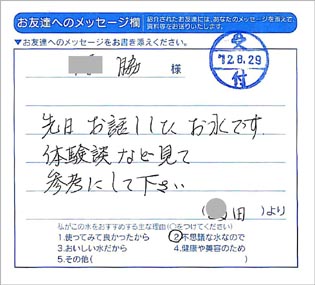 お友達へのメッセージ欄
紹介されたお友達には、あなたのメッセージを添えて、
資料等をお送りいたします。
お友達へのメッセージをお書き添えください。
受
'12.8.29
付
脇 様
先日 お話しした お水です
体験談など見て
参考にして下さい
田 より
私がこの水をおすすめする主な理由(○をつけてください)
1.使ってみて良かったから
2.不思議な水なので
3.おいしい水だから
4.健康や美容のため
5.その他( )